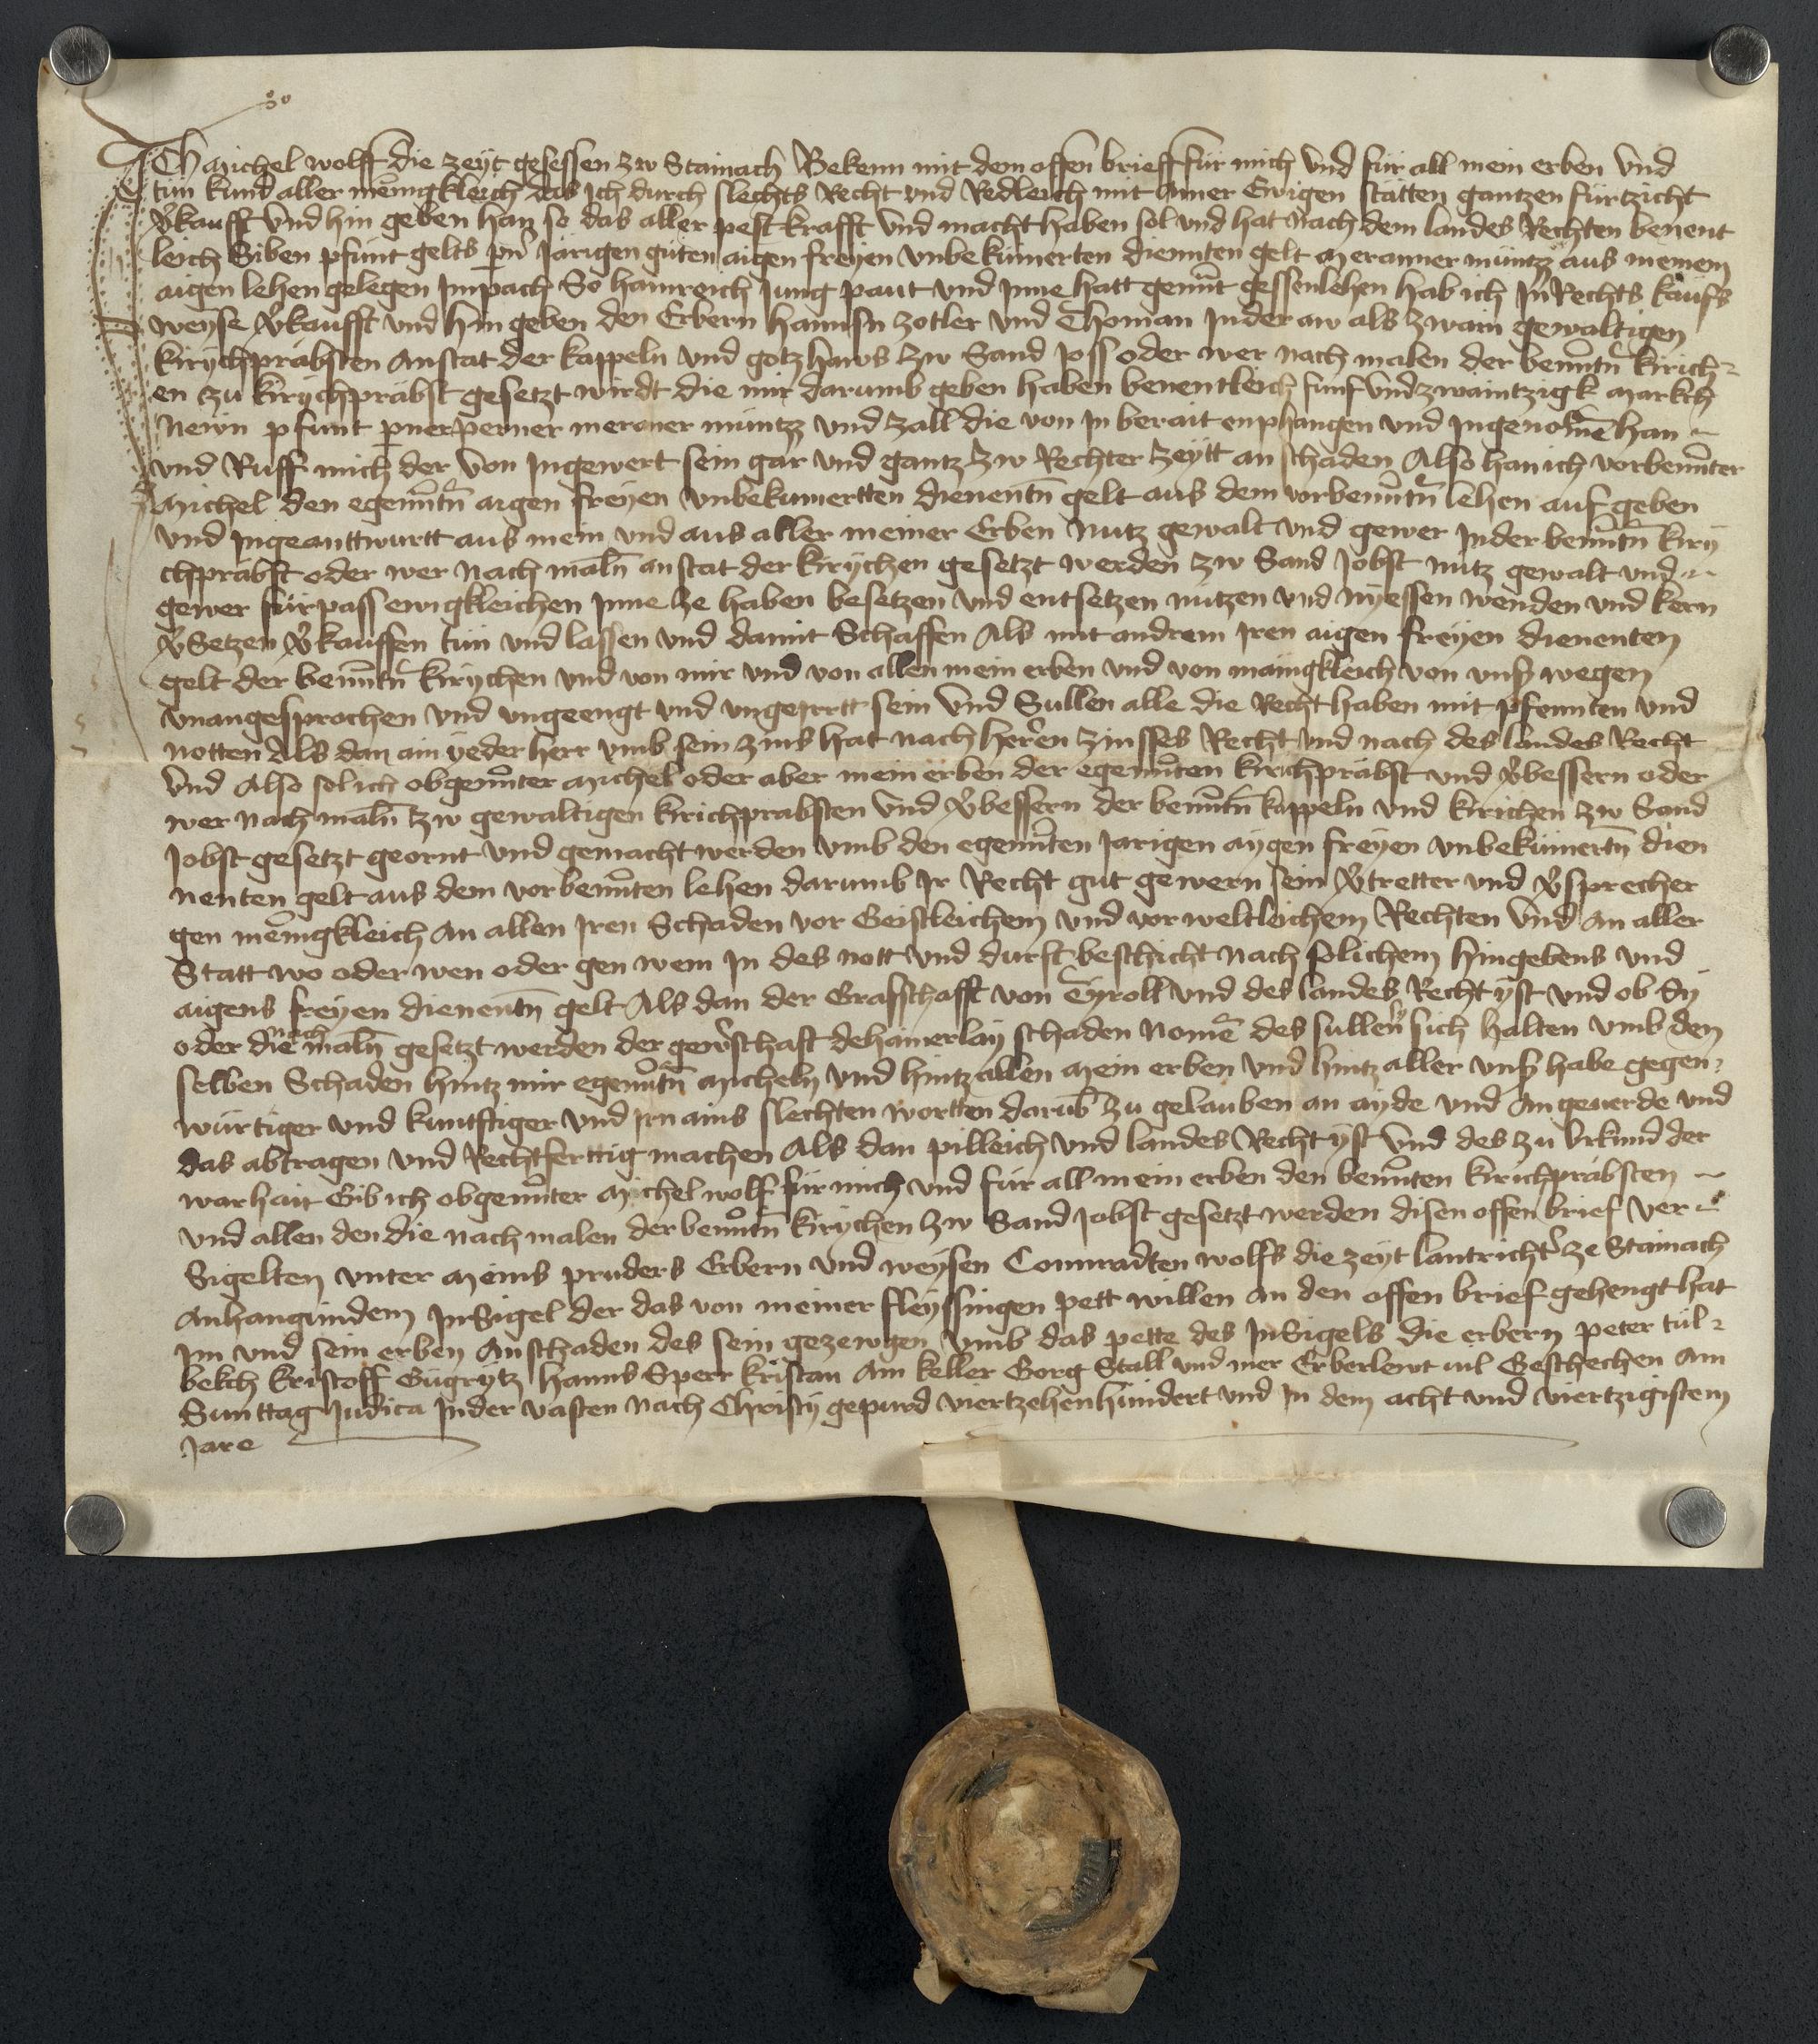 ICh Michel wolff die zeyt gesessen zw Stainach Bekenn mit dem offen brieff für mich vnd für all mein erben vnd
tun kund aller menigkleich das Ich durch slechts Recht vnd Redleich mit ainer Ewigen stätten gantzen fürtzicht
v̄kaufft vnd hin geben han so das aller pest krafft vnd macht haben sol vnd hat nach dem landes Rechten benent
leich Siben pfunt gelts pn̄ Järigen guten aigen freyen vnbekümerten diennten gelt Meranner müntz aus meinem
aigen lehen gelegen Im pach So hainreich Jung paut vnd Inne hatt genn̄t gessenlehen hab ich In Rechts kaufs
weyse v̄kaufft vnd hin geben den Erbern hannsn zotler vnd Thoman Inder aw als zwain gewaltigen
kirychpräbsten Anstat der kappeln vnd gotzhaws zw Sand Joss oder wer nach malen der benn̄tn̄ kirich-
en zu kirychpräbst gesetzt wirdt die mir darumb geben haben benentleich funf vnd zwaintzigk markch
Newn pfunt perner perner meroner müntz vnd zall die von In berait enphangen vnd Ingenomē han
vnd Ruff mich der von In gewert sein gar vnd gantz zw Rechter zeytt an schaden Also han ich vorbenn̄ter
Michel den egenn̄tn̄ aigen freyen vnbekumertten dienentn̄ gelt aus dem vorbenn̄tn̄ lehen auf geben
vnd Ingeanttwurtt aus mein vnd aus aller meiner Erben Nutz gewalt vnd gewer Inder benn̄tn̄ kiry
chpräbst oder wer nach maln̄ anstat der kirychen gesetzt werden zw Sand Jobst nutz gewalt vnd
gewer fürpass ewigkleichen Inne ze haben besetzen vnd entsetzen nutzen vnd nyessen wenden vnd kern
v̄Setzen v̄kauffen tün vnd lassen vnd damit Schaffen Als mit andrem Iren aigen freyen dienenten
gelt der benn̄tn̄ kirychen vnd von mir vnd von allen mein erben vnd von mänigkleich von vnß wegen
vnangesprochen vnd vngeengt vnd vngeirrtt sein vnd Sullen alle die Recht haben mit pfennten vnd
notten Als dan ain yeder herr vmb sein zins hat nach herren zinsses Recht vnd nach des landes Recht
vnd Also sol ich obgenn̄ter Michel oder aber mein erben der egenn̄ten kirichpräbst vnd v̄bessern oder
wer nach maln̄ zw gewaltigen kirichprabsten vnd v̄bessern der benn̄tn̄ kappeln vnd kirichen zw Sand
Jobst gesetzt geornt vnd gemacht werden vmb den egenn̄ten Jarigen aygen freyen vnbekümertn̄ dien
nenten gelt aus dem vorbenn̄ten lehen darumb Ir Recht gut gewern sein v̄tretter vnd v̄sprecher
gen menigkleich an allen Iren Schaden vor Geistleichem vnd vor weltleichem Rechten vnd An aller
Statt wo oder wen oder gen wem In des nott vnd durft beschicht nach solichem hingebens vnd
aigens freyen dienentn̄ gelt Als dan der Grafschafft von Tyroll vnd des landes Recht yst vnd ob Sy
oder die nach maln̄ gesetzt werden der gew̄schaft dehainerlay schaden Nomē des sullen sy sich halten vmb den
selben Schaden hintz mir egenn̄tn̄ Micheln vnd hintz allen Mein erben vnd hintz aller vnß habe gegen-
würtiger vnd kunftiger vnd Irn ains slechten wortten darub̄ zu gelauben an ayde vnd An geuerde vnd
das abtragen vnd Rechtferttig machen Als dan pilleich vnd landes Recht yst vnd des zu vrkund der
warhait Gib ich obgenn̄ter Michel wolf für mich vnd für all mein erben den benn̄ten kirichpräbsten
vnd allen den die nach malen der benn̄tn̄ kirychen zw Sand Jobst gesetzt werden disen offen brief ver
Sigelten vnter Meins pruders Erbern vnd weysen Connradten wolfs die zeyt lantricht̄ ze Stainach
Anhangündem InSigel der das von meiner fleyssingen pett willen an den offen brief gehengt hat
Im vnd sein erben An schaden des sein gezewgen vmb das pette des InSigels die erbern peter tul-
belch kristoff Gügrytz hanns Sperr kristan Am keller Gorg Stall vnd mer Erberlewt vil Geschechen Am
Sunttag Judica Inder vasten Nach Christy gepurd viertzehenhundert vnd In dem acht vnd viertzigistem
Jare